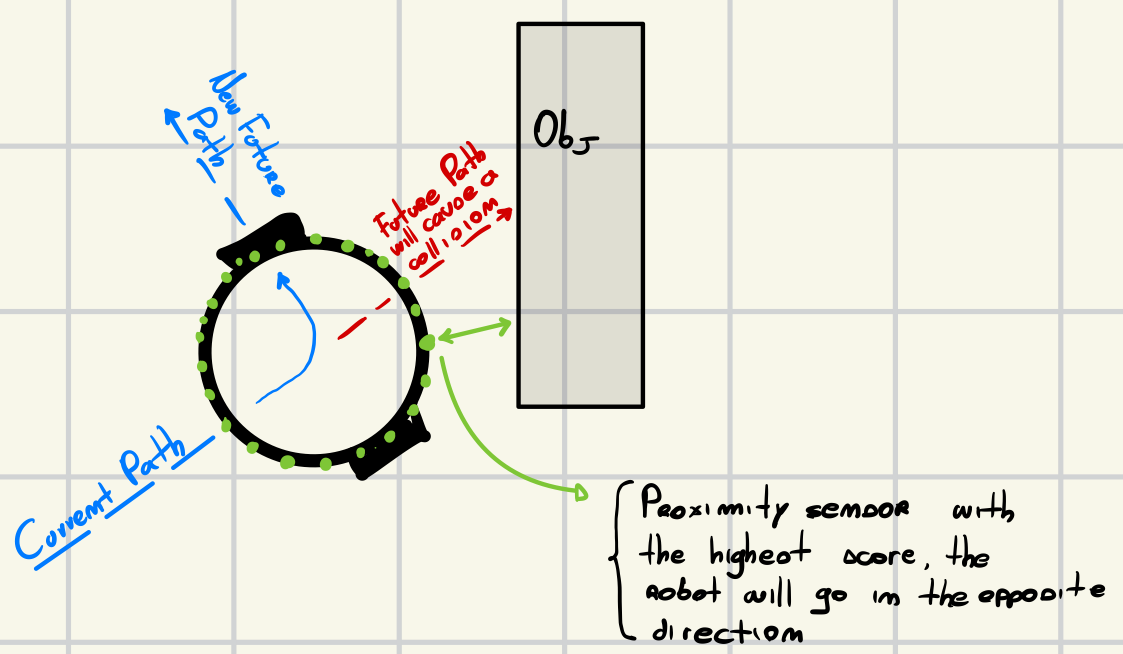 New Future
Path
Obj
Future Path
will cause a
collision
Current Path
Proximity sensor with
the highest score, the
robot will go in the opposite
direction